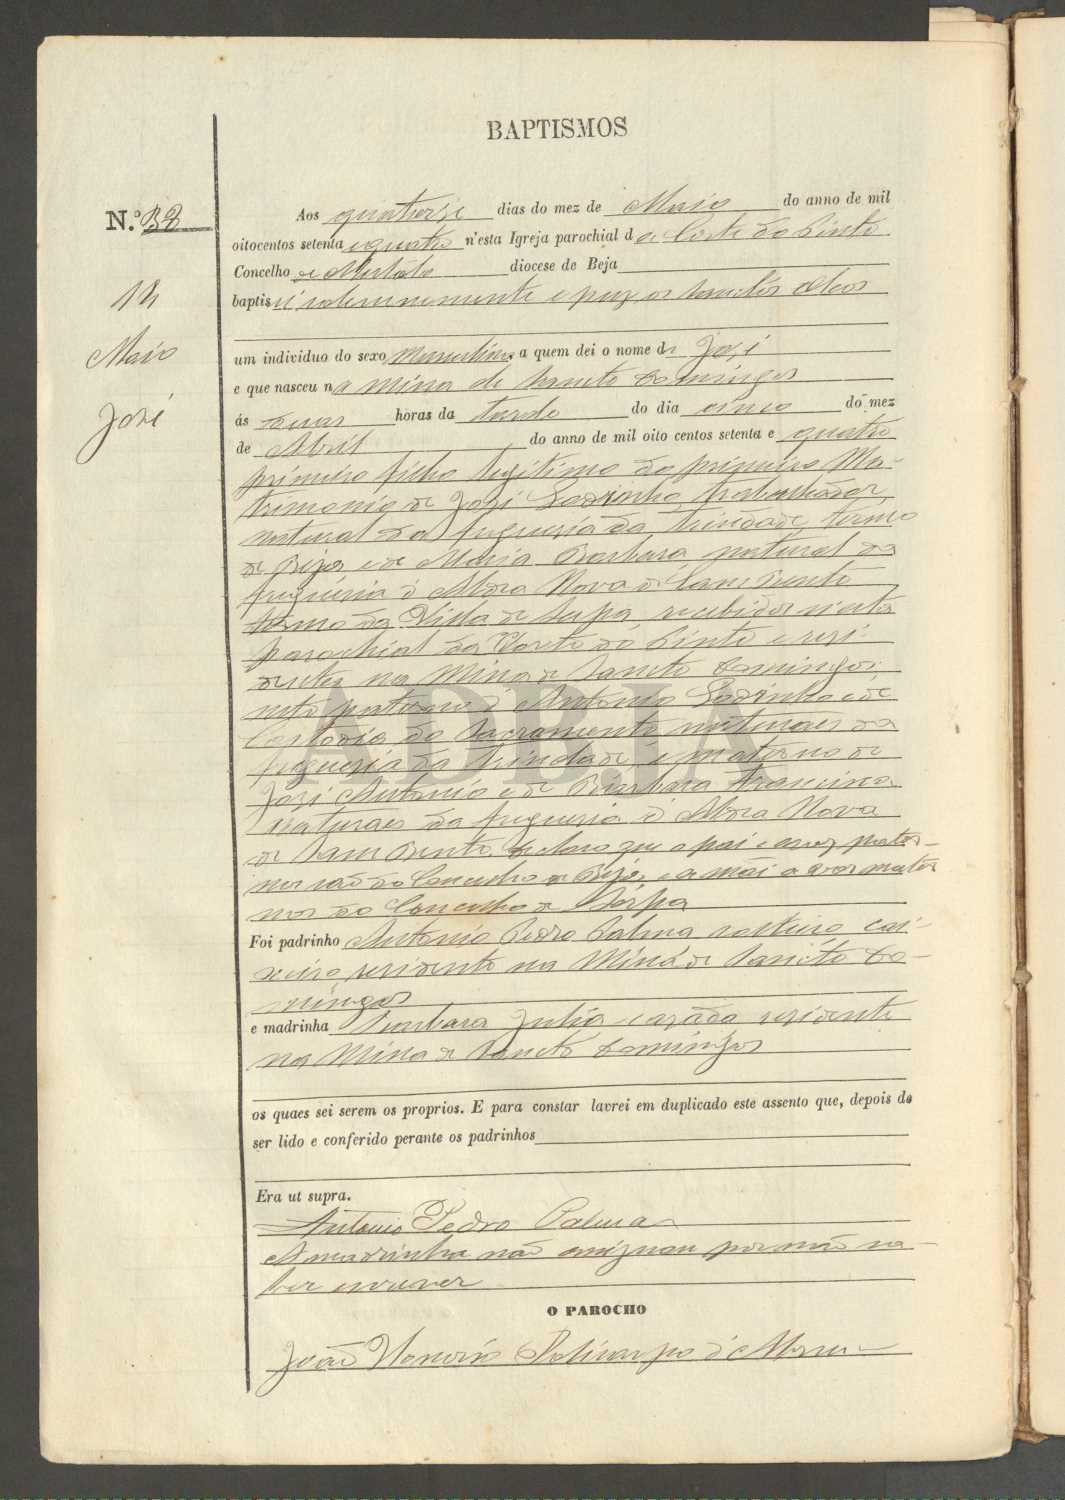 BAPTISMOS
N.º 32
14
Maio
José
Aos quatorze dias do mez de Maio do anno de mil
oitocentos setenta e quatro n'esta Igreja parochial da Corte do Pinto
Concelho de Mertola diocese de Beja
baptisei solemnemente e puz os sanctos Oleos
um individuo do sexo Masculino a quem dei o nome de José
e que nasceu na mina de Sancto Domingos
ás duas horas da tarde do dia cinco do mez
de Abril do anno de mil oito centos setenta e quatro
primeiro filho legitimo do primeiro Ma-
trimonio de José Godinho, trabalhador,
natural da freguesia da Trindade, termo
de Beja e de Maria Barbara natural da
freguesia d'Aldea Nova de Sam Bento
termo da Villa de Serpa, recebidos n'esta
parochial da Corte do Pinto e resi-
dentes na Mina de Sancto Domingos:
neto paterno d'Antonio Godinho e de
Custodia do Sacramento naturaes da
freguesia da Trindade, e materno de
José Antonio e de Barbara Francisca
naturaes da freguesia d'Aldea Nova
de Sam Bento. declaro que o pai e avoz pater-
nos são do Concelho de Beja, e a mãi e avos mater
nos do Concelho de Serpa
Foi padrinho Antonio Pedro Palma solteiro cai-
xeiro, residente na Mina de Sancto Do-
mingos
e madrinha Barbara Julia casada residente
na Mina de Sancto Domingos
os quaes sei serem os proprios. E para constar lavrei em duplicado este assento que, depois de
ser lido e conferido perante os padrinhos
Era ut supra.
Antonio Pedro Palma
A madrinha não assignou por não sa-
ber escrever
O PAROCHO
João Policarpo
ADBJ